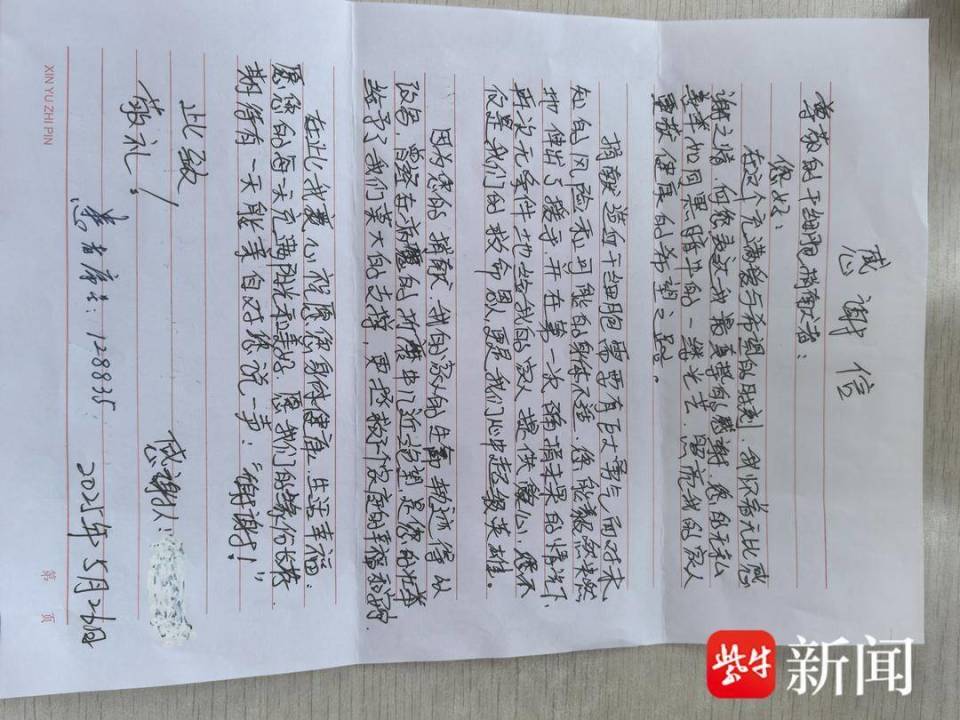 感谢信
尊敬的干细胞捐献者：
您好！
在这个充满爱与希望的时刻，我怀着无比感
谢之情，向您致以我最真挚的感谢，您的无私
善举如同黑暗中的一缕光芒，照亮我的家人
重获健康的希望之路。
捐献造血干细胞需要有巨大勇气面对未
知的风险和可能的身体不适，您能毅然决然
地伸出了援手并在第一次捐献果的情况下，
再次无条件地给我的家人提供爱心，您不
仅是我们的救命恩人更是我们心中超级英雄。
因为您的捐献，我的家人的生命轨迹得以
改写，曾经在病魔的折磨中几近绝望，是您的善举
给予了我们莫大的支撑，更拯救了个家庭的幸福和
在此我衷心祝愿您身体健康，生活幸福；
愿您的每天充满阳光和美好，愿我们的缘份长存，
期待有一天能亲自对您说一声："谢谢！"
此致
敬礼！
感谢人：
128835
2025年5月26日
XIN YU ZHI PIN
第 页
紫牛新闻